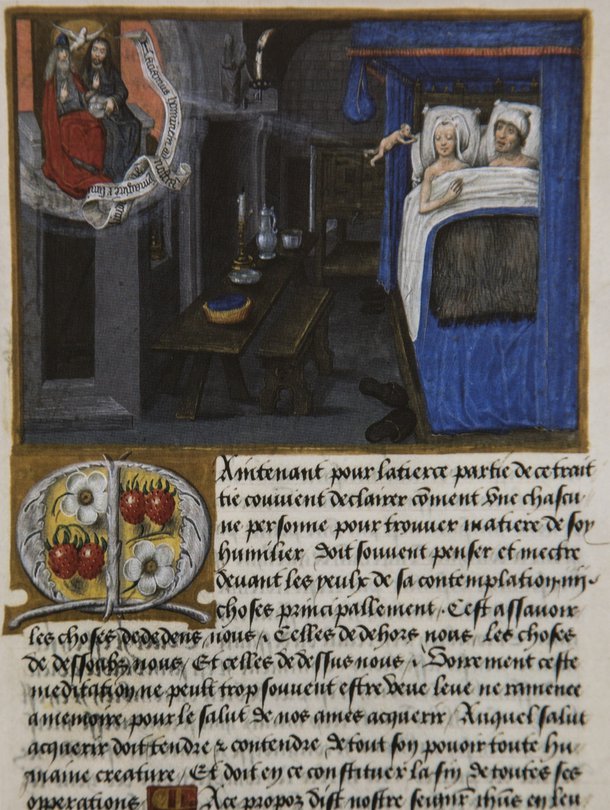 faciamus hominem ad
ymaginem et simi
Maintenant pour la tierce partie de ce trait
tie convient declairer cõment vne chascu
ne personne pour trouver matiere de soy
humilier doit souvent penser et mectre
devant les yeulx de sa contemplation iiij
choses principallement. Cest assavoir
les choses de dedens nous. Celles de dehors nous, les choses
de dessoubz nous, Et celles de dessus nous.
meditation ne peult trop souvent estre leue ne ramence
a memoire pour le salut de nos ames acquerir, Auquel salut
acquerir doit tendre & contendre de tout son pouoir toute hu
maine creature, Et doit en ce constituer la fin de toutes ses
operations A ce propoz dist nostre seigneur